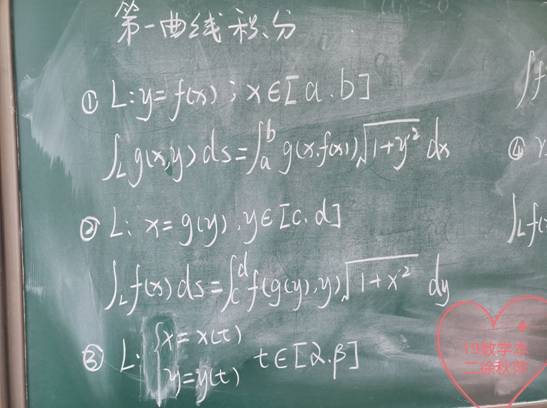 第一曲线积分
① L:y=f(x);x∈[a.b]
∫_L g(x,y)ds=∫_a^b g(x.f(x))√(1+y'²) dx
② L: x=g(y),y∈[c.d]
∫_L f(x)ds=∫_c^d f(g(y),y)√(1+x'²) dy
③ L: {x=x(t)
y=y(t) t∈[α.β]
∫f
④
∫_L f(
19数学本